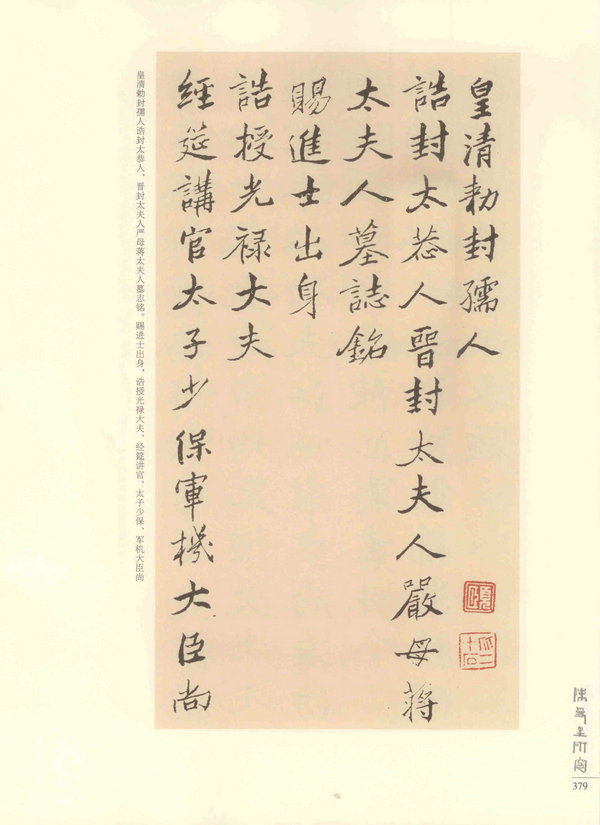 皇清勅封孺人
誥封太恭人晉封太夫人嚴母蔣
太夫人墓誌銘
賜進士出身
誥授光禄大夫
經筵講官太子少保軍機大臣尚
皇清勅封孺人诰封太恭人、晋封太夫人严母蒋太夫人墓志铭。赐进士出身，诰授光禄大夫、经筵讲官、太子少保、军机大臣尚
379